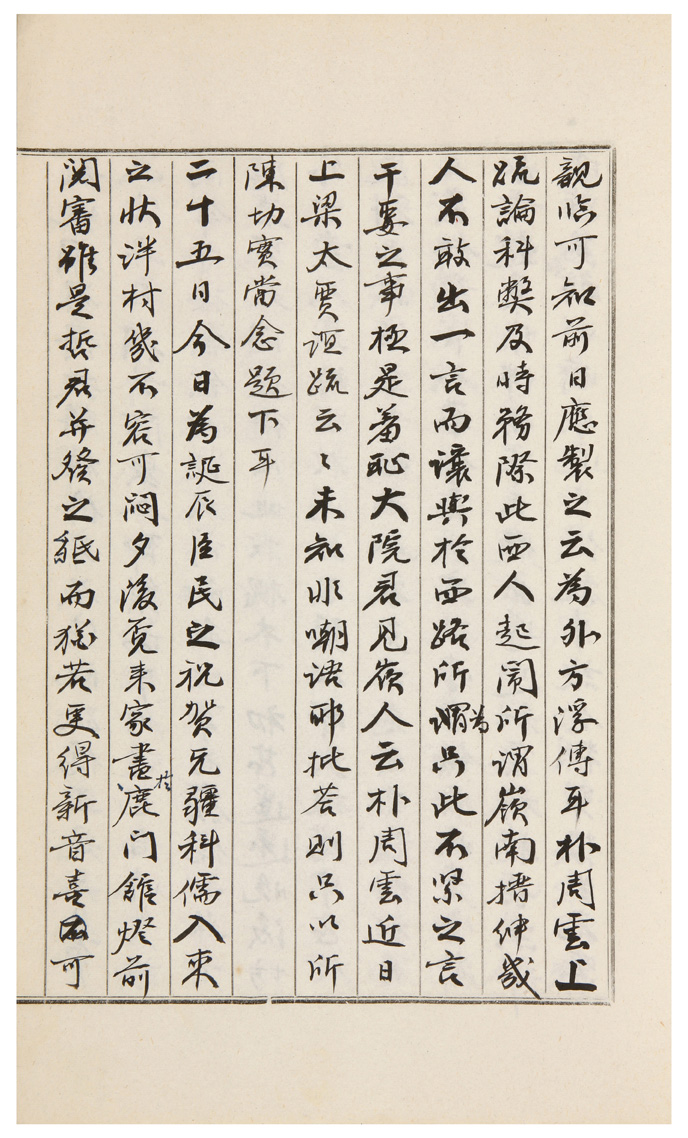 親臨可知前日應製之云爲外方浮傳耳朴周雲上
疏論科弊及時務際此西人起鬧所謂嶺南搢紳幾
人不敢出一言而讓與於西路所謂爲只此不緊之言
干要之事極是羞恥大院君見嶺人云朴周雲近日
上梁太賈誼疏云〻未知非嘲語耶批荅則只以所
陳切實當念題下耳
二十五日今日爲誕辰臣民之祝賀无疆科儒入來
之狀泮村幾不容可悶夕後覓來家書於鹿門館燈前
閱審雖是哲君并發之紙而猶若更得新音喜不可